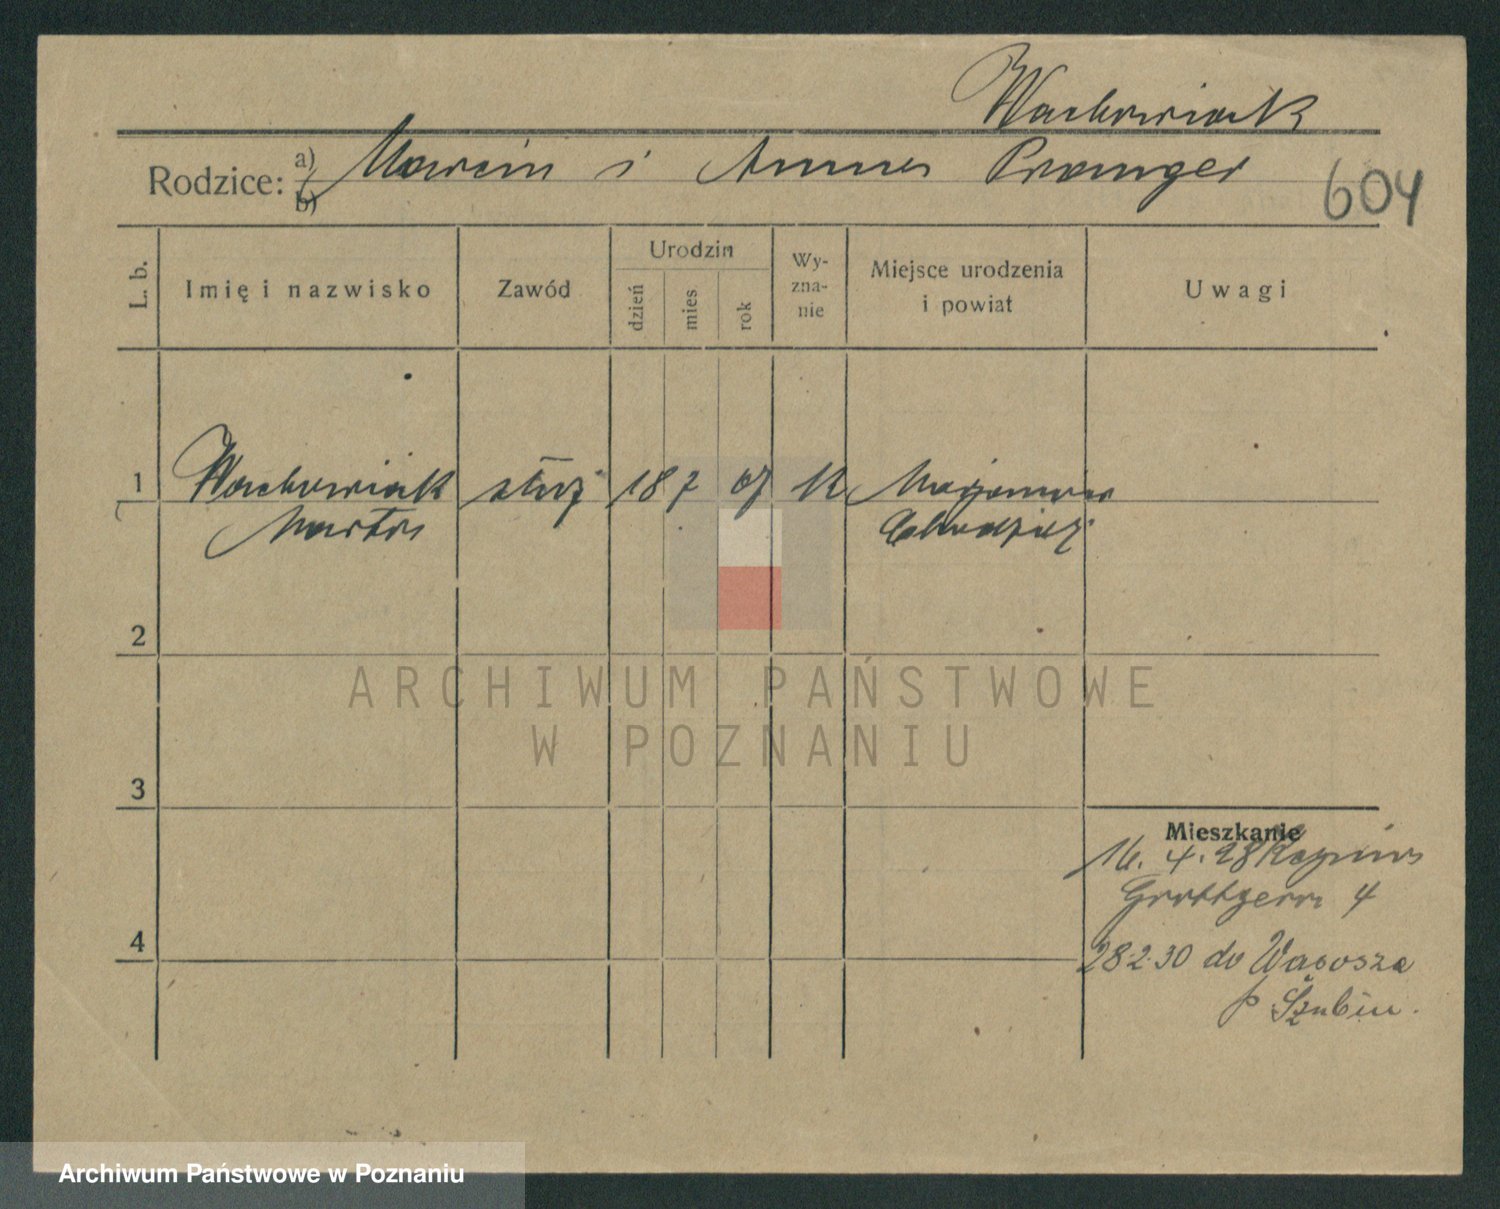 Wachowiak
Rodzice: a) Marcin i Anna Pranger
b)
604
L. b.
Imię i nazwisko
Zawód
Urodzin
dzień
mies
rok
Wy-
zna-
nie
Miejsce urodzenia
i powiat
Uwagi
1
Wachowiak służ 18 7 07 K
Marta Chodzież
2
3
4
Mieszkanie
16. 4. 28
Grottgera 4
28.2.30 do Wąsosza
p Szubin.
ARCHIWUM PAŃSTWOWE
W POZNANIU
Archiwum Państwowe w Poznaniu